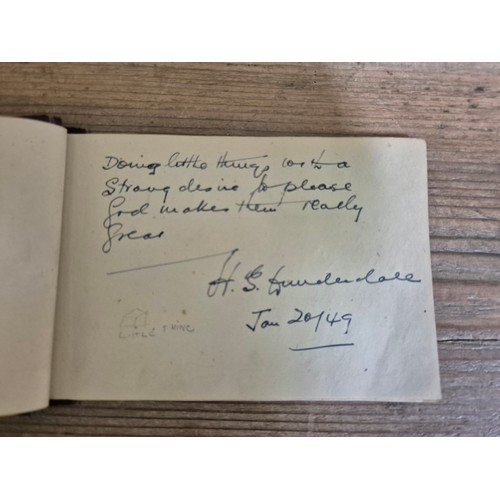 Doing little things with a
Strong desire to please
God makes them really
great
H. G. Dunderdale
Jan 20/49
LITTLE